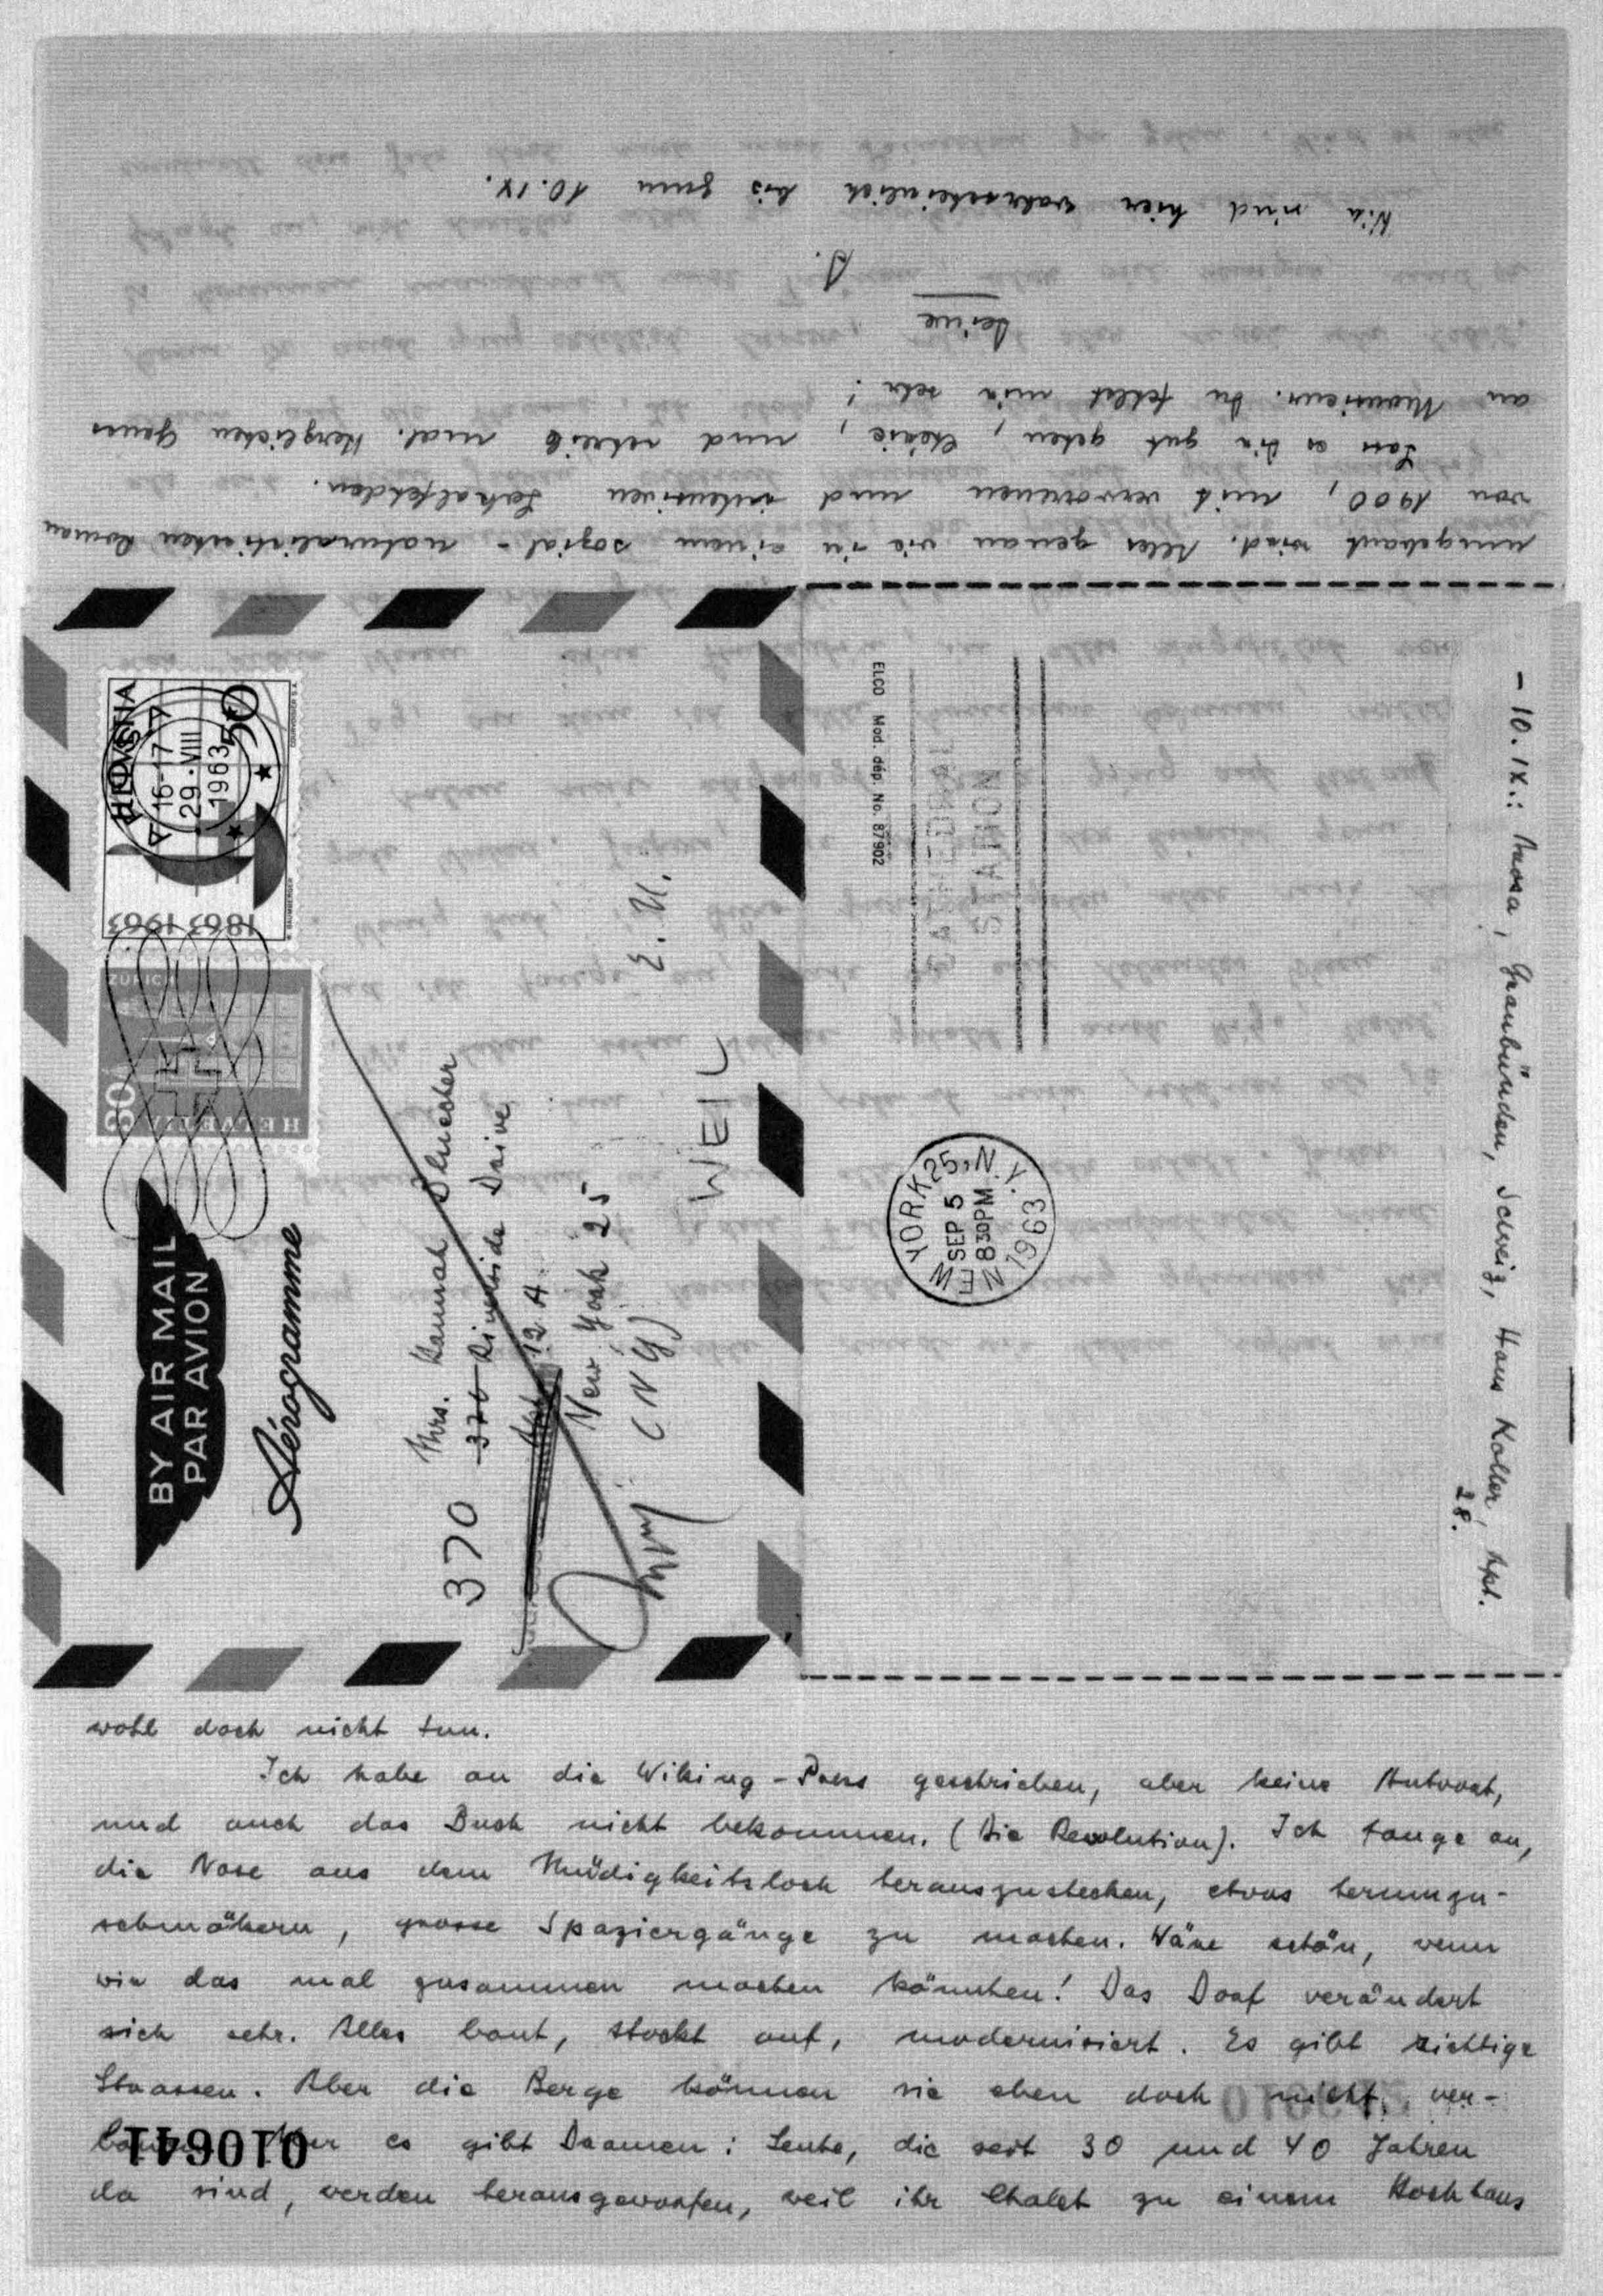 wohl doch nicht tun.
Ich habe an die Wiking-Press geschrieben, aber keine Antwort,
und auch das Buch nicht bekommen. (Die Revolution). Ich fange an,
die Nase aus dem Müdigkeitsloch herauszustecken, etwas herumzu-
schmökern, grosse Spaziergänge zu machen. Wäre schön, wenn
wir das mal zusammen machen könnten! Das Dorf verändert
sich sehr. Alles baut, stockt auf, modernisiert. Es gibt richtige
Strassen. Aber die Berge können sie eben doch nicht ver-
es gibt Dramen: Leute, die seit 30 und 40 Jahren
da sind, werden herausgeworfen, weil ihr Chalet zu einem Hochhaus
umgebaut wird. Alles genau wie in einem sozial-naturalistischen Roman
von 1900, mit verworrenen und intensiven Lokalfehden.
Lass es Dir gut gehen, Chérie, und schreib mal. Herzlichen Gruss
an Monsieur. Du fehlst mir sehr!
Deine
A.
Wir sind hier wahrscheinlich bis zum 10.IX.
- 10.IX.: Arosa, Graubünden, Schweiz, Haus Koller, Apt.
28.
Mrs. Hannah Bluecher
370 Riverside Drive
Apt. 12 A
New York 25
(NY)
WEIL
BY AIR MAIL
PAR AVION
Aérogramme
HELVETIA
50
16-17
29.VIII
1963
1863 1963
ZÜRICH
30
HELVETIA
ELCO Mod. dép. No. 87902
CATHEDRAL
STATION
NEW YORK 25, N.Y.
SEP 5
8 30 PM
1963
0106411